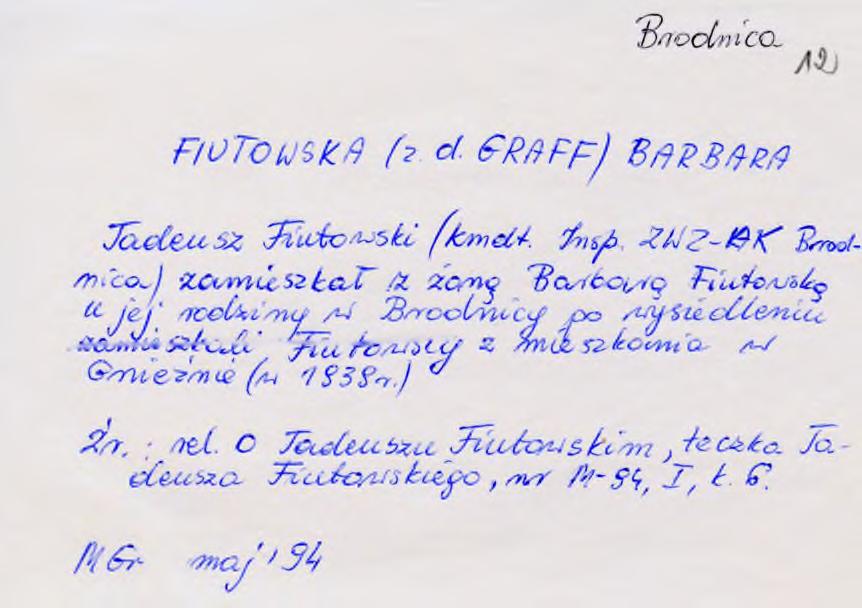 Brodnica
12
FIUTOWSKA (z d. GRAFF) BARBARA
Tadeusz Fiutowski (kmdt. Insp. ZWZ-AK Brod-
nica) zamieszkał z żoną Barbarą Fiutowską
u jej rodziny w Brodnicy po wysiedleniu
zamieszkali Fiutowscy z mieszkania w
Gnieźnie (w 1939r.)
Źr.: rel. o Tadeuszu Fiutowskim, teczka Ta-
deusza Fiutowskiego, nr M-94, I, k. 6.
MGr maj '94